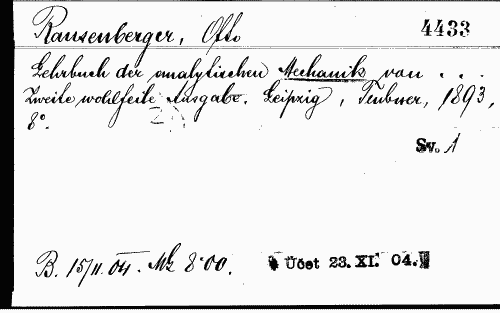 Rausenberger, Otto
4433
Lehrbuch der analytischen Mechanik von . . .
Zweite wohlfeile Ausgabe. Leipzig, Teubner, 1893,
8°.
Sv. 1
B. 15/11. 04. Mk 8·00.
Účet 23. XI. 04.